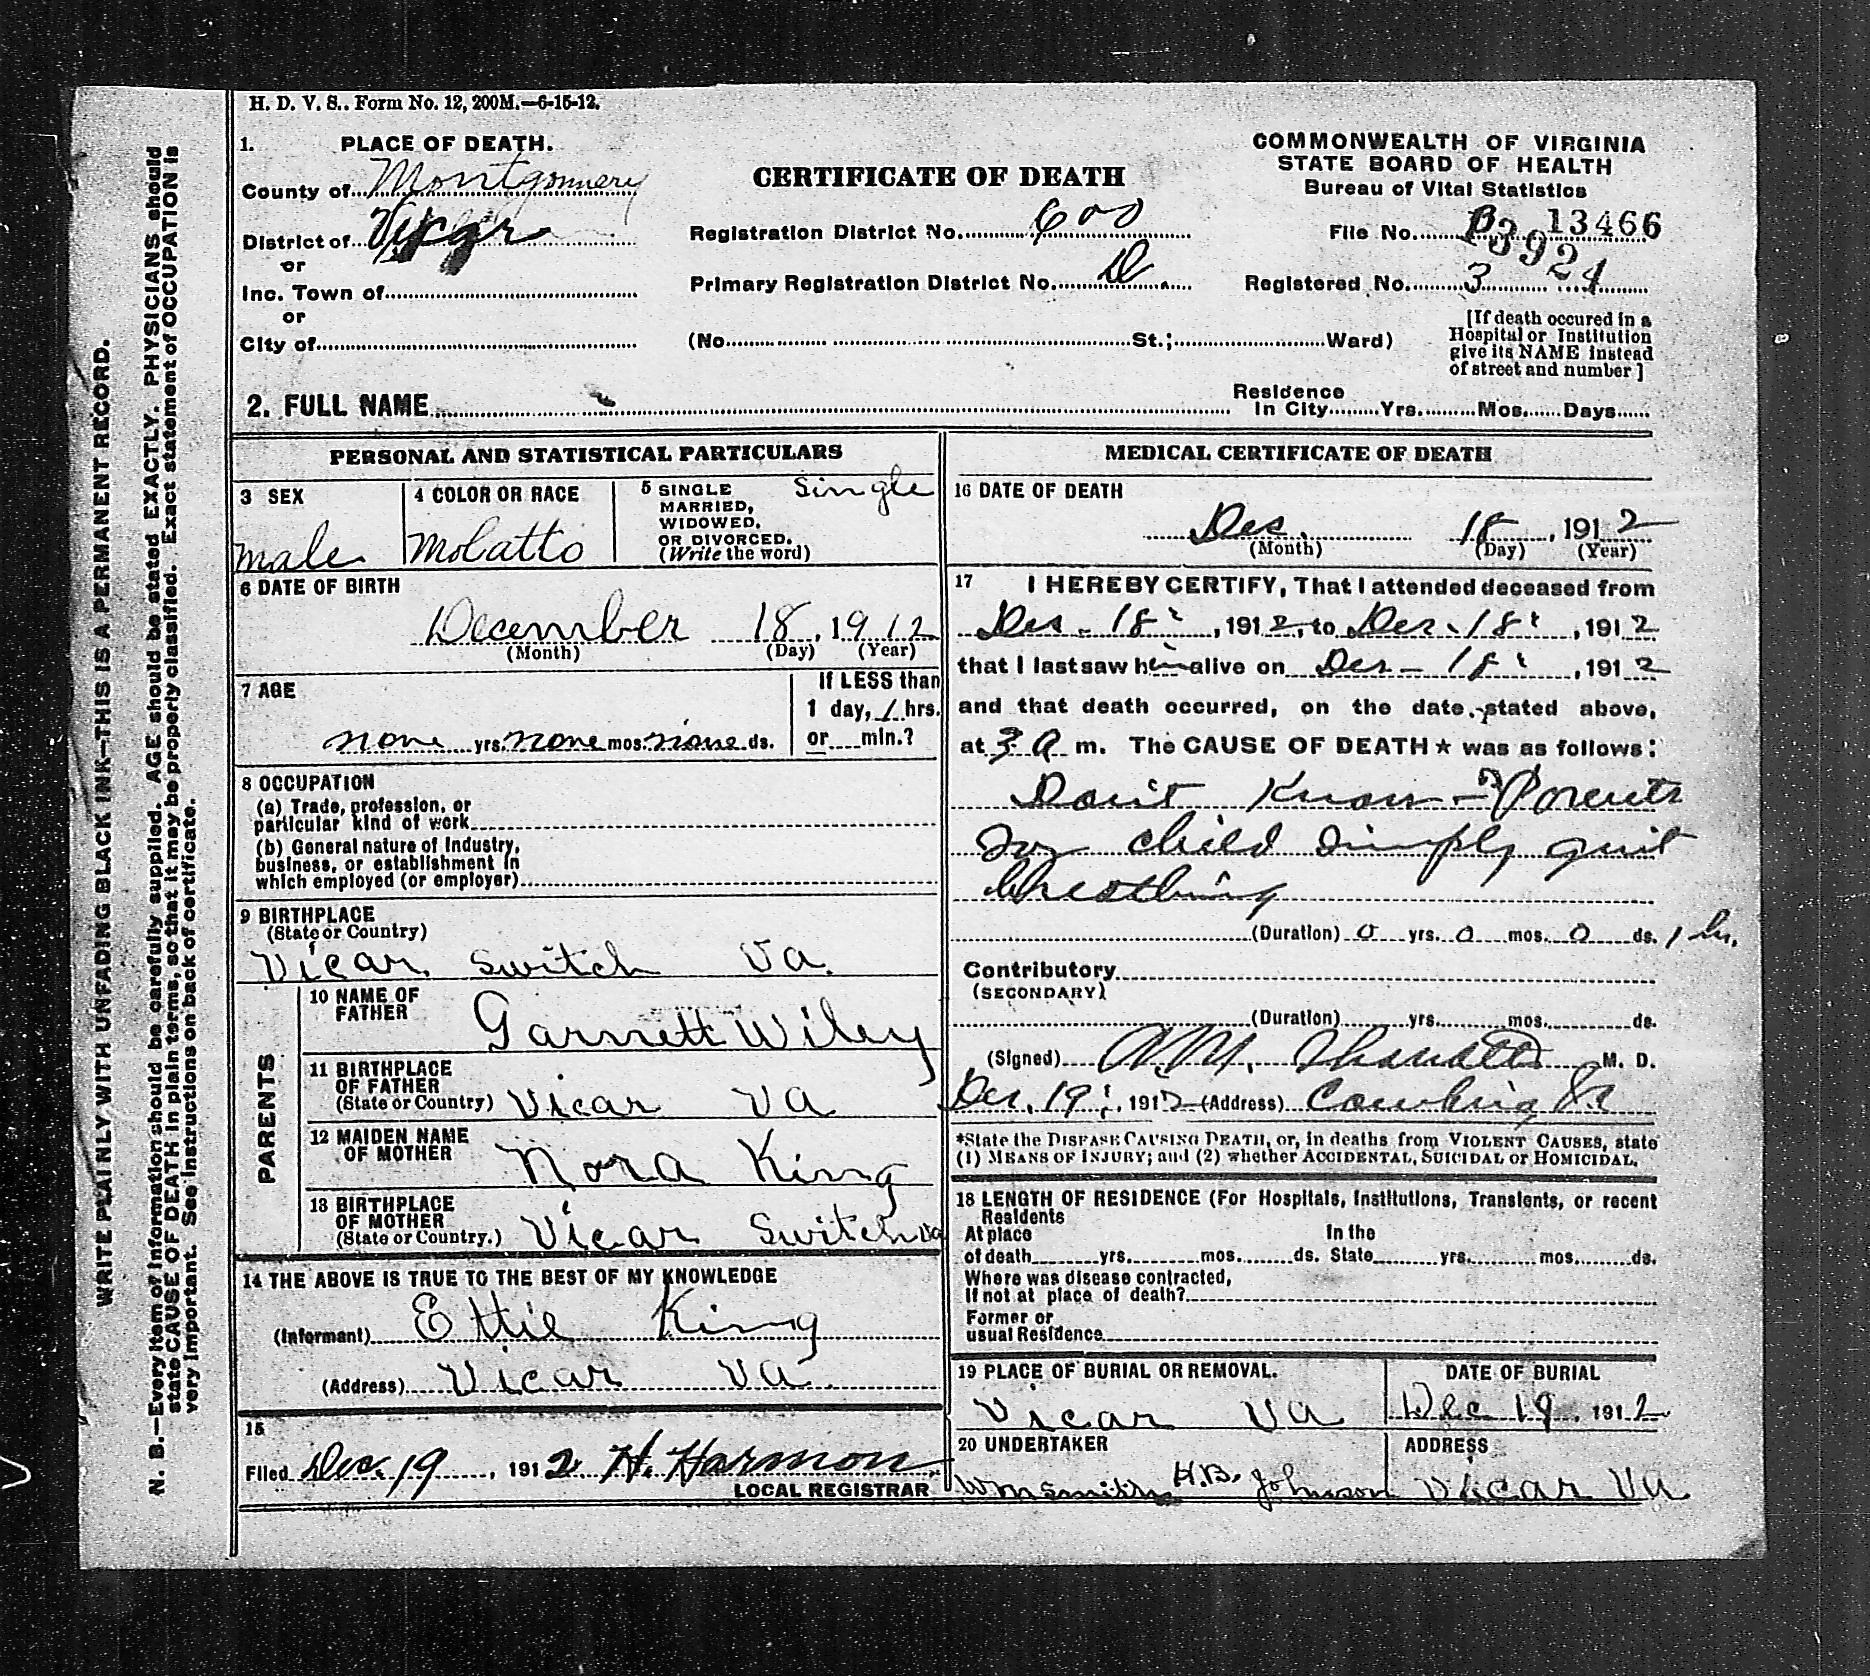 H. D. V. S.. Form No. 12, 200M.—6-15-12.
1. PLACE OF DEATH.
County of Montgomery
District of Vicar
or
Inc. Town of
or
City of
CERTIFICATE OF DEATH
Registration District No. 600
Primary Registration District No. D
(No. St.; Ward)
COMMONWEALTH OF VIRGINIA
STATE BOARD OF HEALTH
Bureau of Vital Statistics
File No. 13466
3924
Registered No. 3
[If death occured in a
Hospital or Institution
give its NAME instead
of street and number]
2. FULL NAME
Residence
In City Yrs. Mos. Days
PERSONAL AND STATISTICAL PARTICULARS
3 SEX
male
4 COLOR OR RACE
Molatto
5 SINGLE
MARRIED,
WIDOWED,
OR DIVORCED.
(Write the word)
Single
6 DATE OF BIRTH
December 18, 1912
(Month) (Day) (Year)
7 AGE
none yrs. none mos. none ds.
If LESS than
1 day, 1 hrs.
or min.?
8 OCCUPATION
(a) Trade, profession, or
particular kind of work
(b) General nature of Industry,
business, or establishment in
which employed (or employer)
9 BIRTHPLACE
(State or Country)
Vicar Switch Va.
PARENTS
10 NAME OF
FATHER
Garnett Wiley
11 BIRTHPLACE
OF FATHER
(State or Country) Vicar Va
12 MAIDEN NAME
OF MOTHER
Nora King
13 BIRTHPLACE
OF MOTHER
(State or Country.) Vicar Switch Va
14 THE ABOVE IS TRUE TO THE BEST OF MY KNOWLEDGE
(Informant) Ettie King
(Address) Vicar Va
15
Filed Dec. 19, 1912 H. Harmon
LOCAL REGISTRAR
MEDICAL CERTIFICATE OF DEATH
16 DATE OF DEATH
Dec. 18, 1912
(Month) (Day) (Year)
17 I HEREBY CERTIFY, That I attended deceased from
Dec - 18, 1912, to Dec - 18, 1912
that I last saw him alive on Dec - 18, 1912
and that death occurred, on the date stated above,
at 3 a m. The CAUSE OF DEATH★ was as follows:
Don't Know - Parents
say child simply quit
breathing
(Duration) 0 yrs. 0 mos. 0 ds. 1 hr.
Contributory
(SECONDARY)
(Duration) yrs. mos. ds.
(Signed) M. D.
Dec. 19, 1912 (Address)
*State the DISEASE CAUSING DEATH, or, in deaths from VIOLENT CAUSES, state
(1) MEANS OF INJURY; and (2) whether ACCIDENTAL, SUICIDAL or HOMICIDAL.
18 LENGTH OF RESIDENCE (For Hospitals, Institutions, Transients, or recent
Residents
At place In the
of death yrs. mos. ds. State yrs. mos. ds.
Where was disease contracted,
If not at place of death?
Former or
usual Residence
19 PLACE OF BURIAL OR REMOVAL.
Vicar Va
DATE OF BURIAL
Dec 19, 1912
20 UNDERTAKER
Wm Smith H.B. Johnson
ADDRESS
Vicar Va
WRITE PLAINLY WITH UNFADING BLACK INK—THIS IS A PERMANENT RECORD.
N. B.—Every item of information should be carefully supplied. AGE should be stated EXACTLY. PHYSICIANS should
state CAUSE OF DEATH in plain terms, so that it may be properly classified. Exact statement of OCCUPATION is
very important. See instructions on back of certificate.